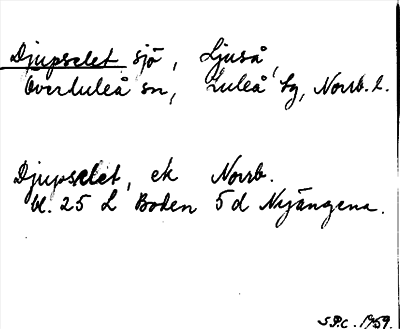 Djupselet sjö, Ljuså,
Överluleå sn, Luleå tg, Norrb. l.
Djupselet, ek Norrb.
bl. 25 L Boden 5d Nyängena.
S.P.C. 1959.